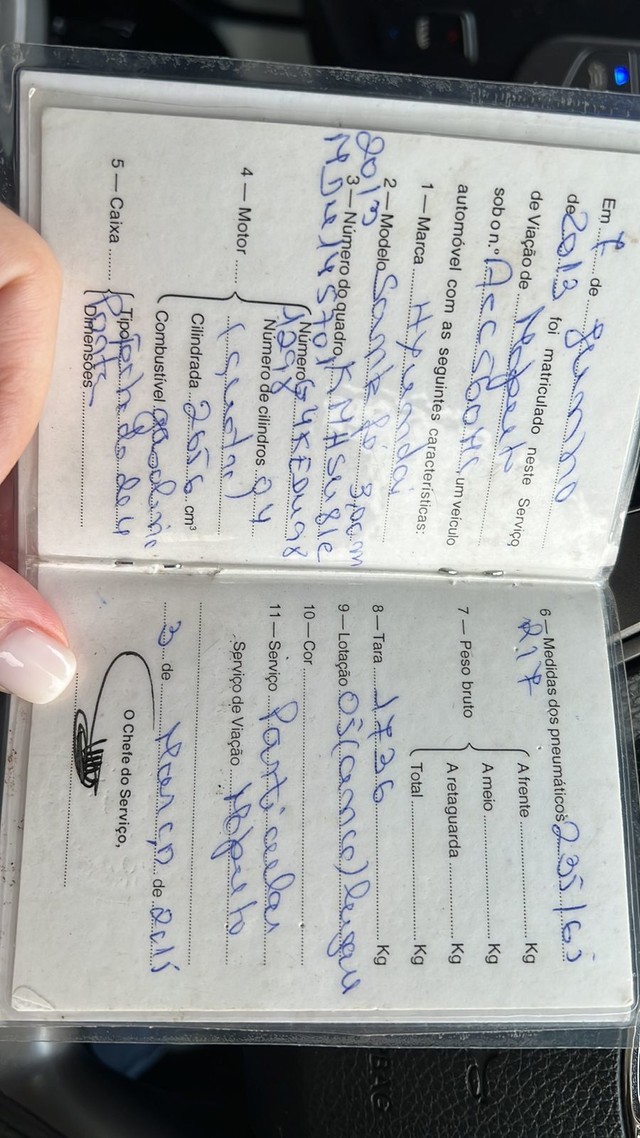 Em 7 de Junho
de 2013 foi matriculado neste Serviço
de Viação de Maputo
sob o n.º um veículo
automóvel com as seguintes características:
1 — Marca Hyundai
2 — Modelo Santa Fé
2013
3 — Número do quadro
4 — Motor
Número
Número de cilindros 04
(quatro)
Cilindrada 2656 cm³
Combustível gasolina
5 — Caixa
Tipo Fechada de 4
Portas
Dimensões
6 — Medidas dos pneumáticos 235/65
R17
7 — Peso bruto
A frente Kg
A meio Kg
A retaguarda Kg
Total Kg
8 — Tara 1736 Kg
9 — Lotação 05 (cinco) lugares
10 — Cor
11 — Serviço Particular
Serviço de Viação Maputo
3 de Março de 2015
O Chefe do Serviço,